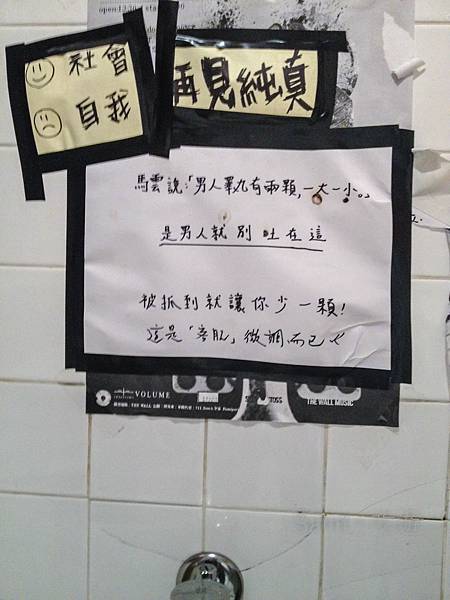 社會
自我
再見純真
馬雲說:「男人睪丸有兩顆,一大一小。」
是男人就別吐在這
被抓到就讓你少一顆!
這是「客觀」微調而已
VOLUME
THE WALL MUSIC